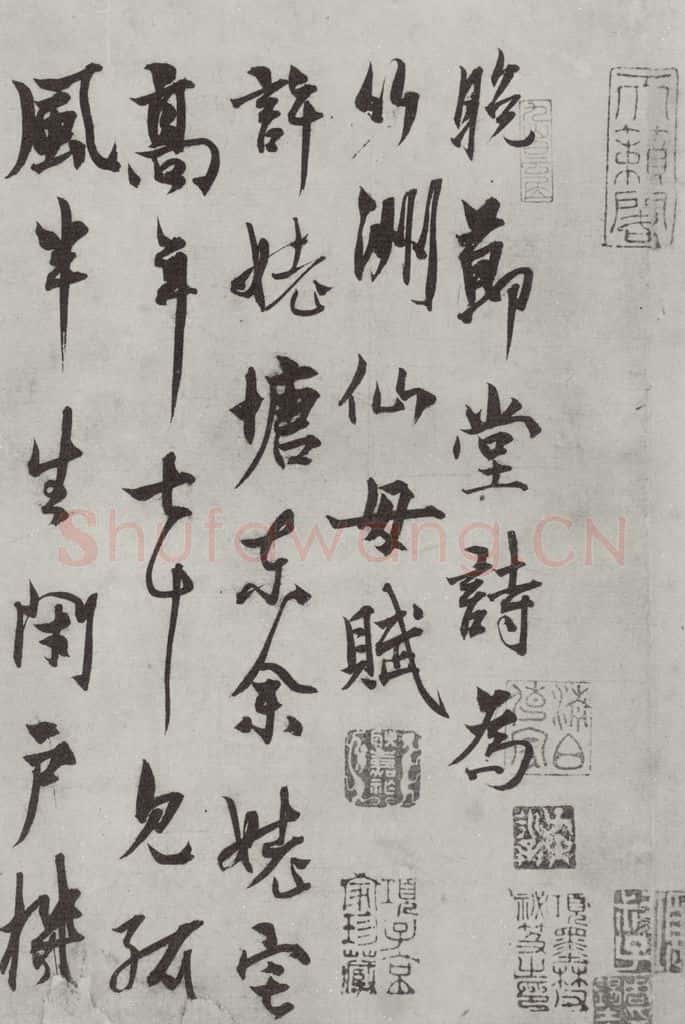 晚節堂詩為
竹洲仙母賦
許姥塘東余姥宅
高年七十見孤
風半生閑戶機
項子京
家珍藏
項墨林
祕笈之印
Shufawang.CN